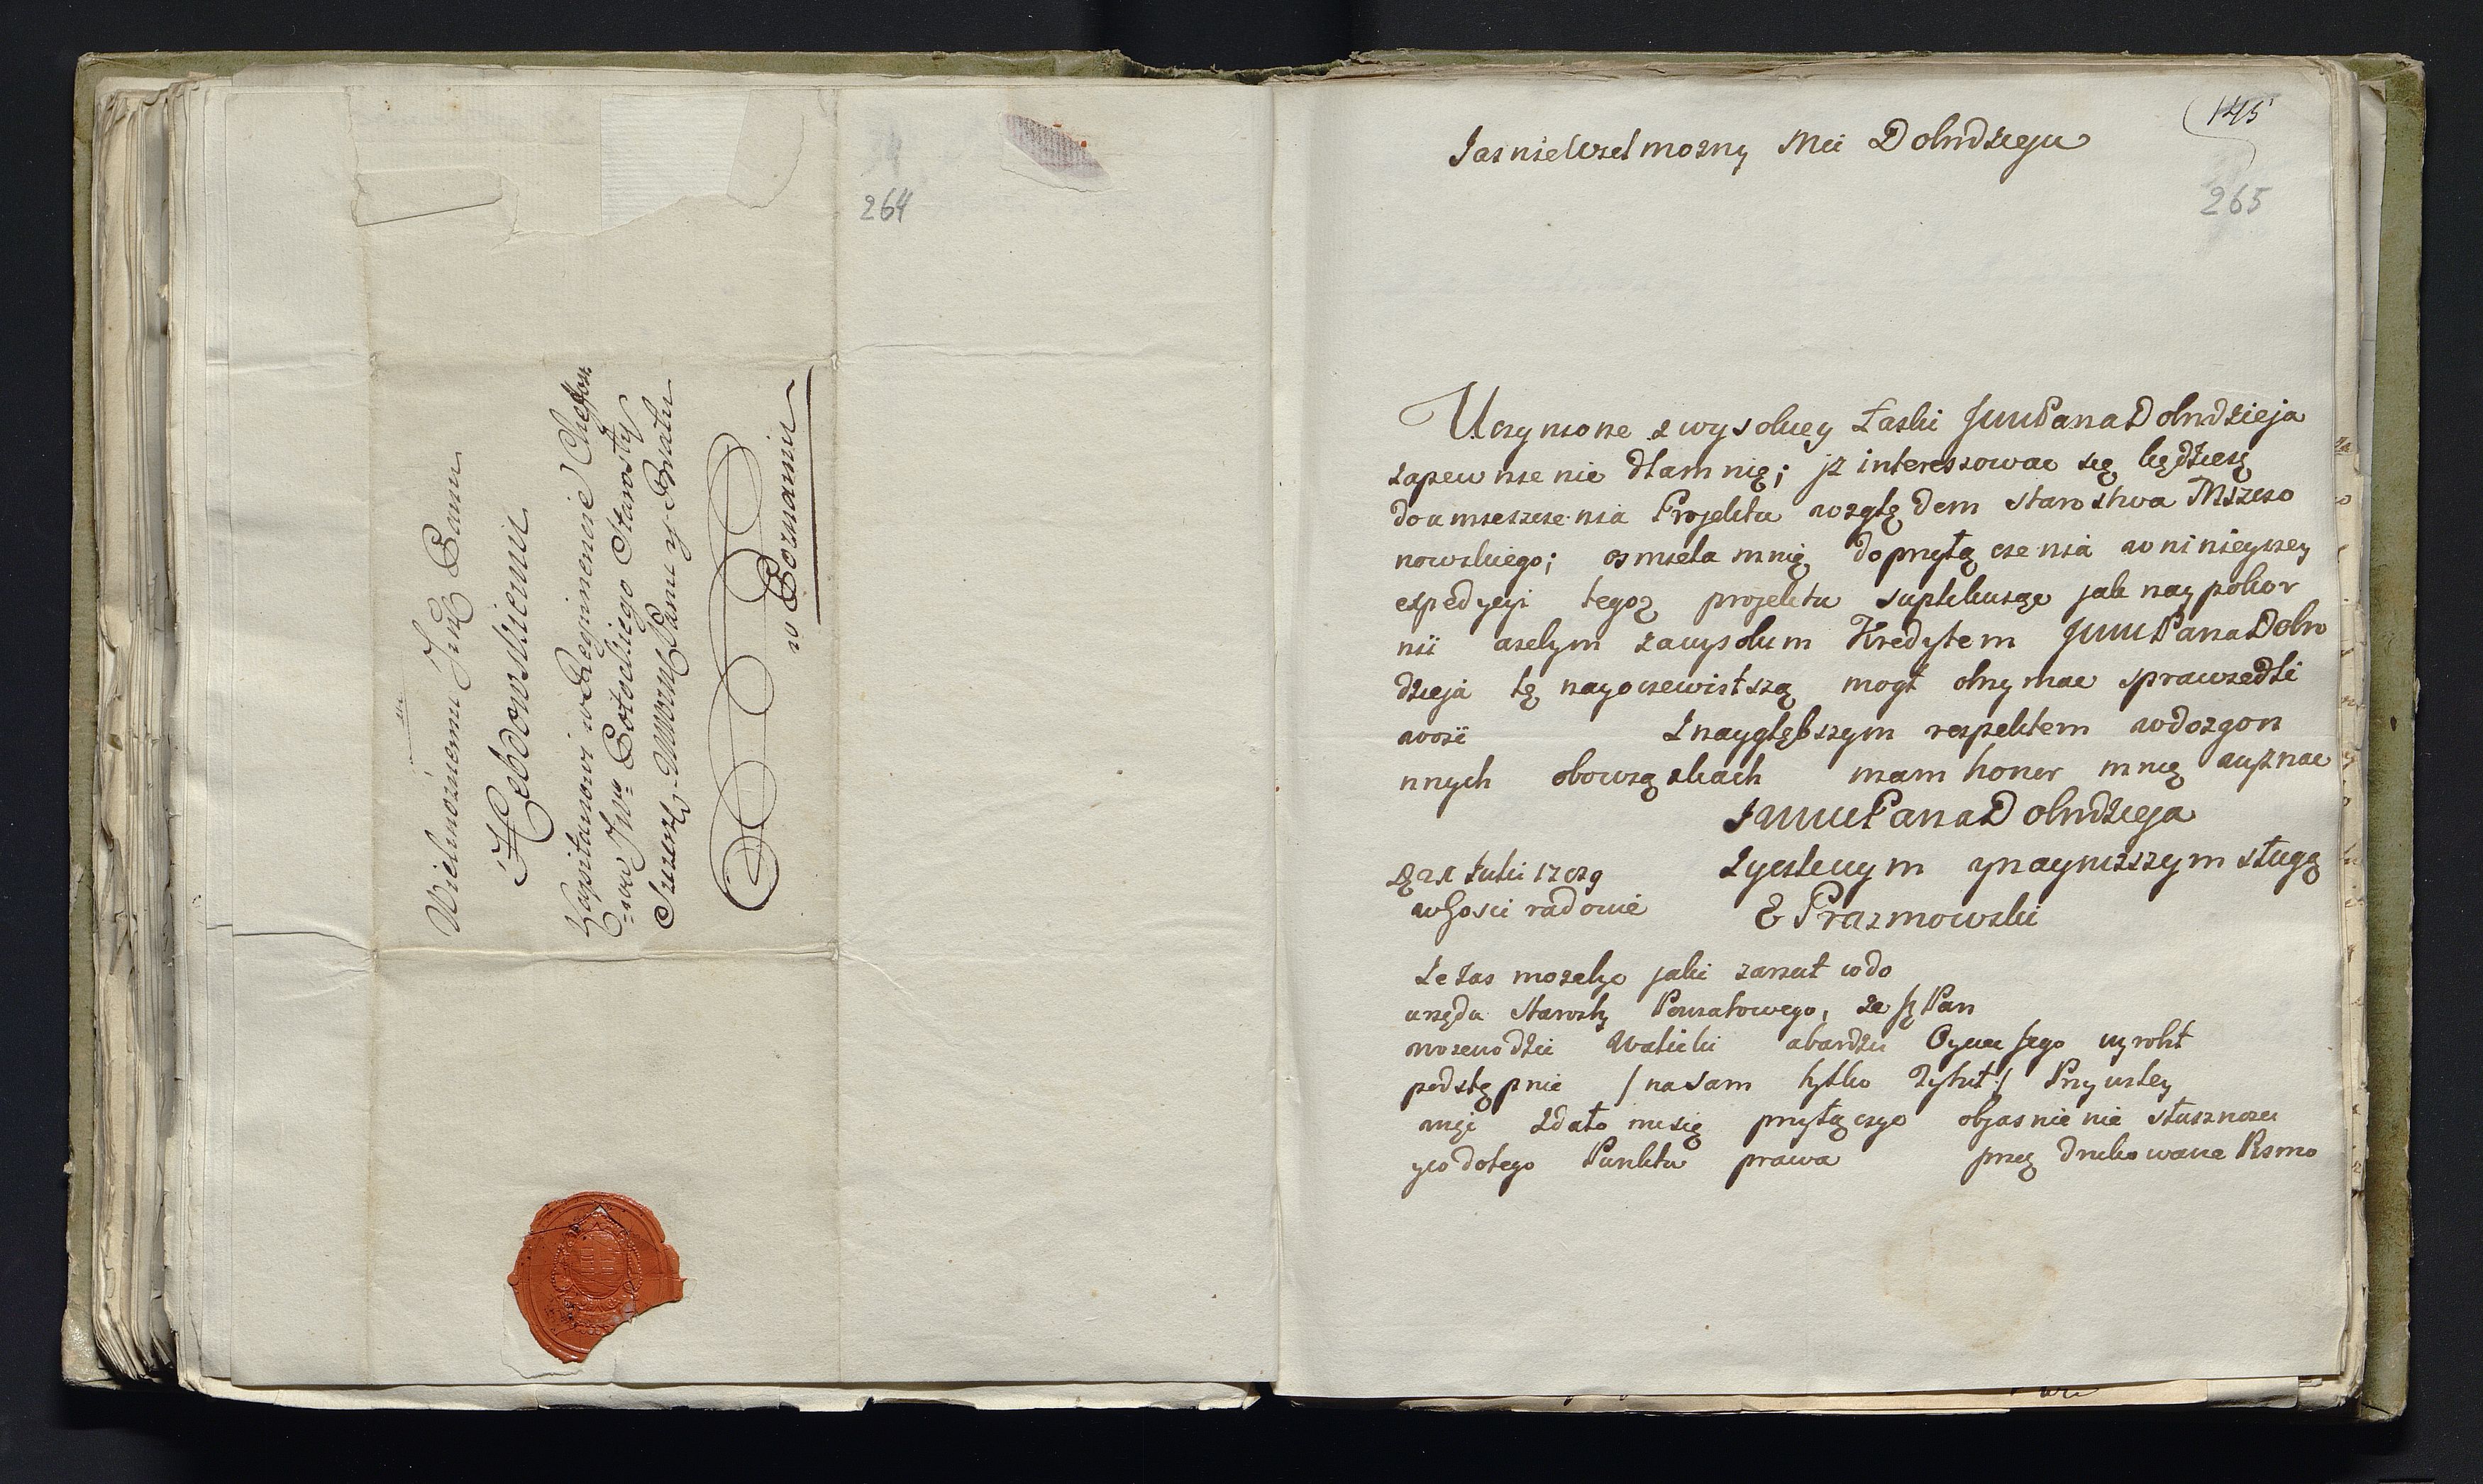 Wielmoznemu Jmć Panu
Hebdowskiemu
Kapitanowi w Regimencie Cheffo
=wa JWgo Potockiego Starosty
Panu y Bratu
w Poznaniu
264
145
265
Jasnie Wielmozny Mci Dobrodzieju
Uczynione z wysokiey Łaski JWWPana Dobrodzieja
zapewnienie dlamnię; jz interessowac się będziesz
do umieszczenia Projektu względem starostwa Mszczo
nowskiego; osmiela mnię do przyłączenia w ninieyszey
expedycyi tegoz projektu suplikuiąc jak naypokor
nii azebym zawysokim Kredytem JWWPana Dobro
dzieja tę nayoczewistszą mogł otrzymac sprawiedli
wosc Z naygłębszym respektem w dozgon
nnych obowiązkach mam honor mnię wyznac
JWWPana Dobrodzieja
Zyczliwym y naynizszym sługą
E Prazmowski
Julii 1789
Ze zas mozebyc jaki zarzut wdo
urzędu Starosty Powiatowego, ze Pan
woiewodzic Walicki abardziey Oyciec Jego wyrobił
podstępnie / na sam tylko Tytuł / Przywiley
więc zdało misię przyłączyc objasnienie słusznosci
y co dotego Punktu prawa przez drukowane Pismo